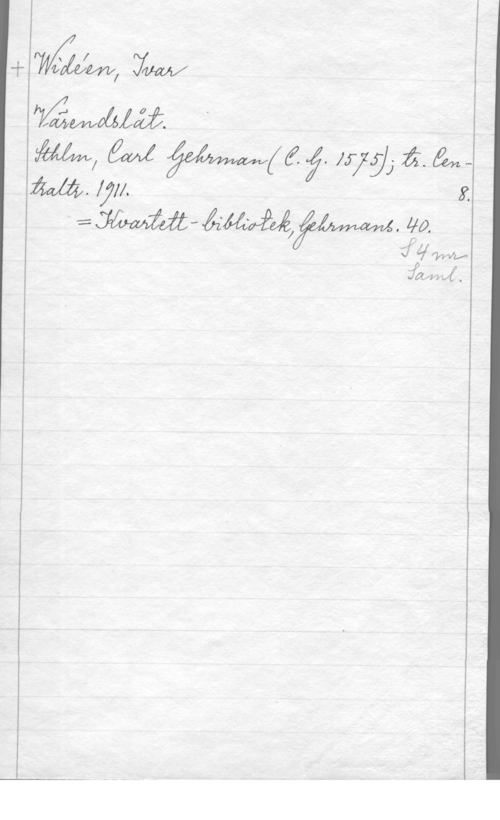 + Widéen, Ivar
Värendslåt.
Sthlm, Carl Gehrman (C. G. 1575); tr. Cen-
traltr. 1911. 8.
= Kvartett-bibliotek, Gehrmans. 40.
S 4 mr
Saml.